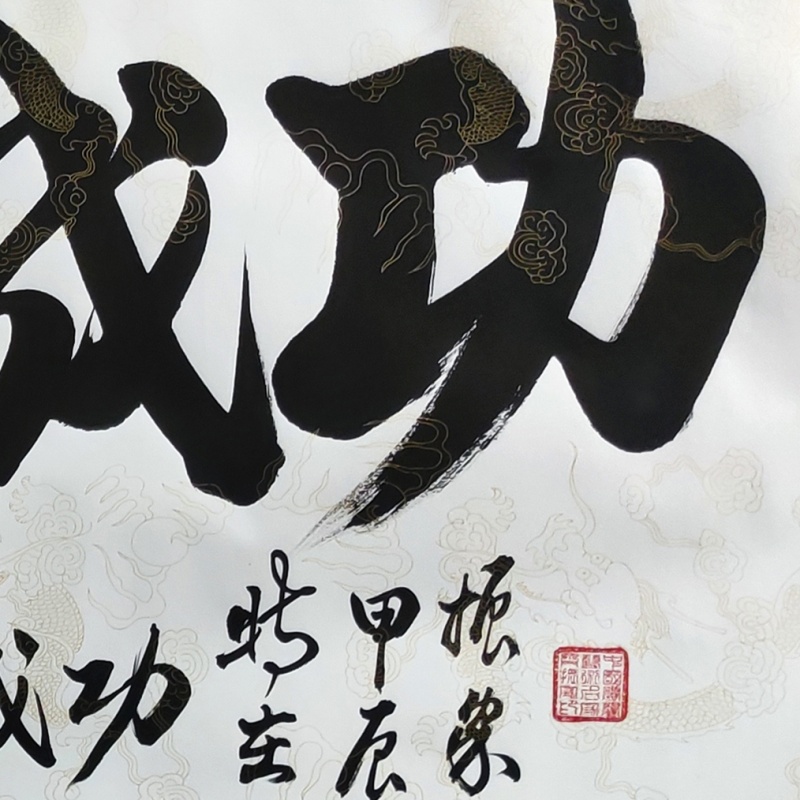 成功
成功
時在
甲辰
振